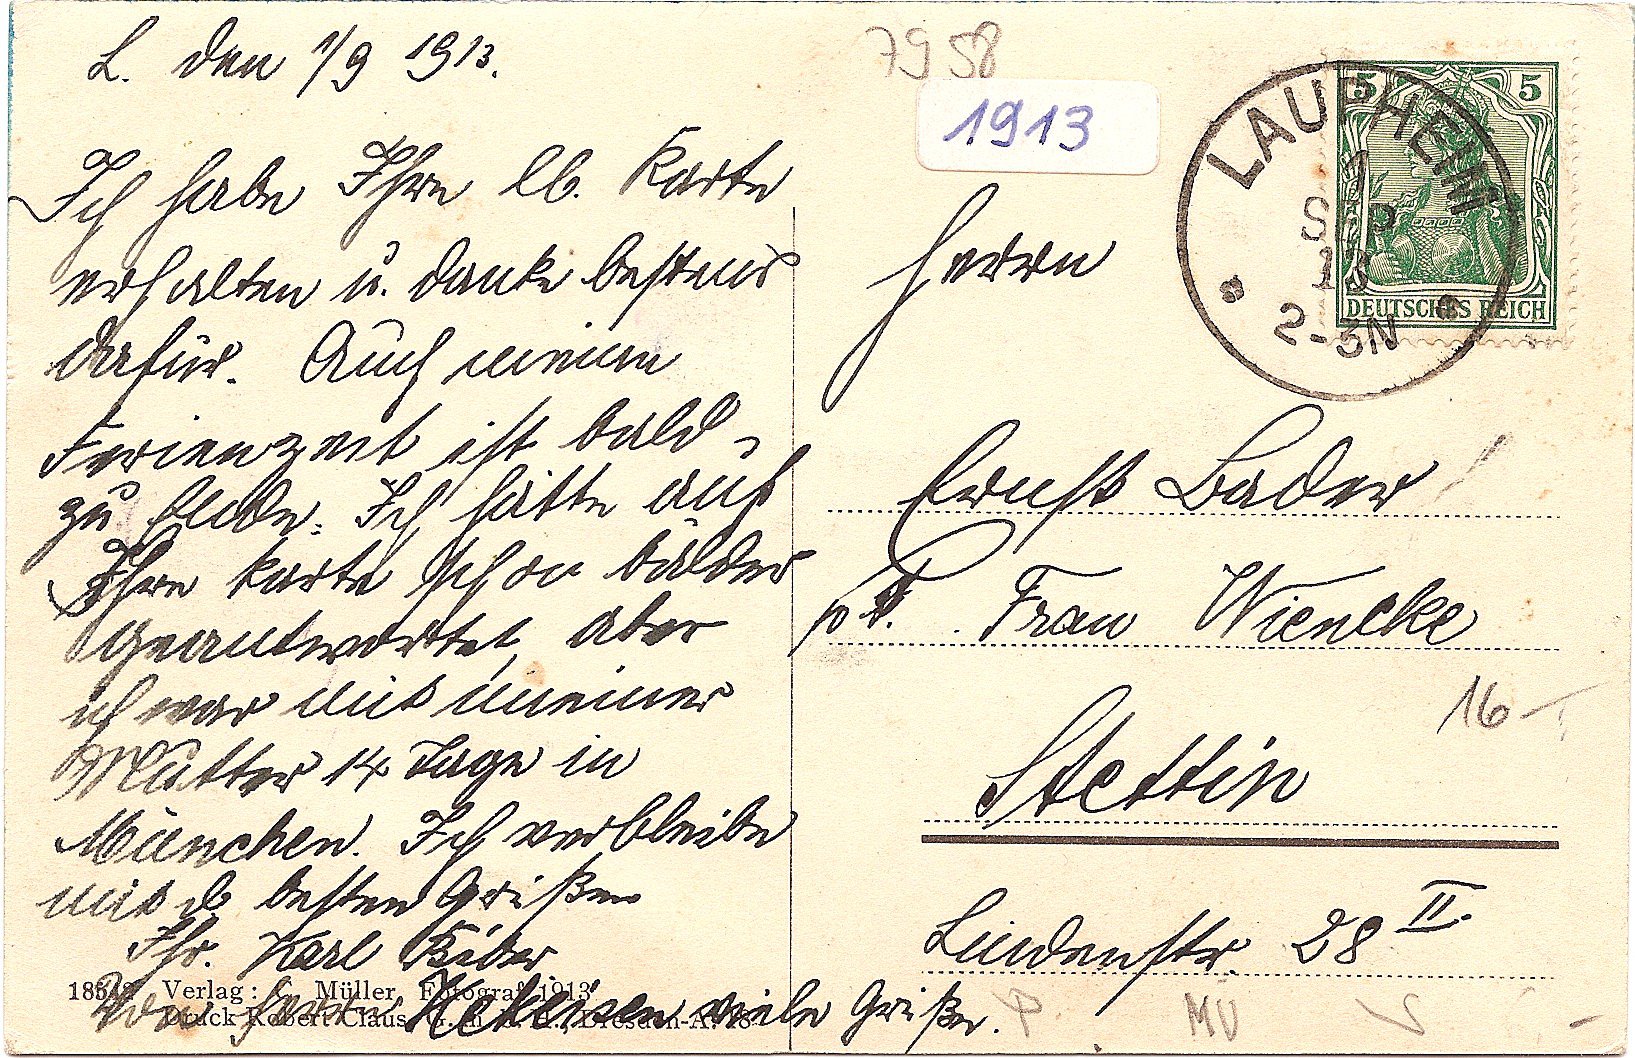 L. den 1/9 1913.
Ich habe Ihre lb. Karte
erhalten u. danke bestens
dafür. Auch meine
Ferienzeit ist bald
zu Ende. Ich hätte auf
Ihre Karte schon bälder
geantwortet, aber
ich war mit meiner
Mutter 14 Tage in
München. Ich verbleibe
mit d. besten Grüßen
Ihr. Karl
Von Herrn viele Grüße.
Verlag: C. Müller, Fotograf 1913
Druck Robert Claus, G. m. b. H., Dresden-A. 18
7958
1913
LAUPHEIM
1
SEP
13
2-3N
5 5
DEUTSCHES REICH
Herrn
Ernst Bader
p. Frau Wiencke
16-
Stettin
Lindenstr. 28 II.
P. MÜ